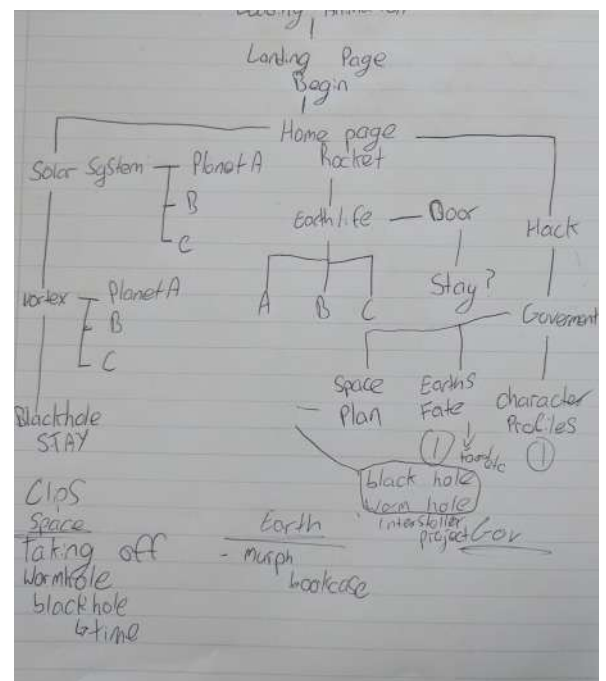 Landing Page
Begin
Home page
Rocket
Solar System
Planet A
B
C
Earth life
Door
Hack
A
B
C
Stay?
Vortex
Planet A
B
C
Goverment
Space
Plan
Earths
Fate
character
Profiles
Blackhole
STAY
1
1
black hole
worm hole
interstellar
project Gov
Clips
Space
Taking off
Wormhole
blackhole
time
Earth
- murph
bookcase